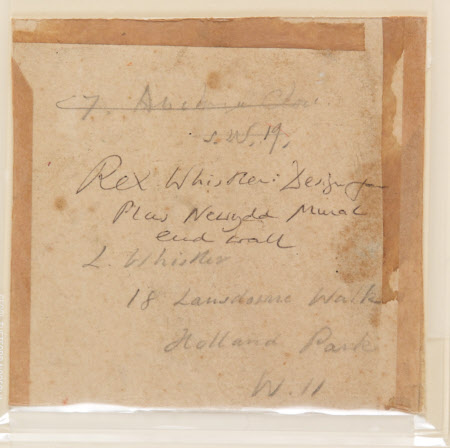 S.W.19,
Rex Whistler: Design for
Plas Newydd Mural
end wall
L. Whistler
18 Lansdowne Walk
Holland Park
W.11